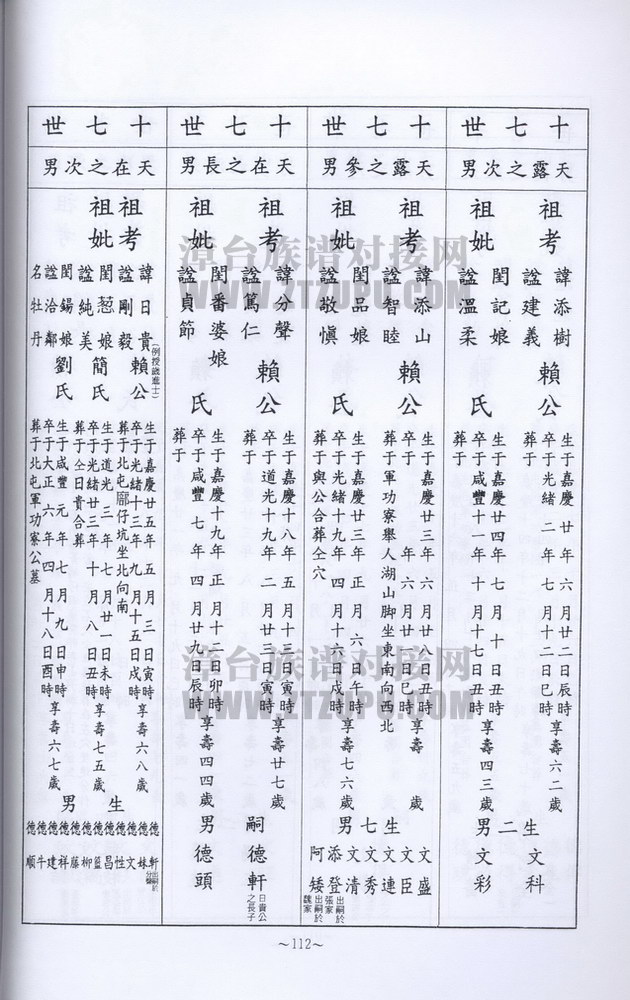 十七世
天露之次男
祖考 諱添樹 諡建義 賴公
生于嘉慶廿年六月廿二日辰時
卒于光緒二年七月十二日巳時享壽六二歲
葬于
祖妣 閨記娘 諡溫柔 氏
生于嘉慶廿四年七月十日丑時
卒于咸豐十一年十月十七日丑時享壽四三歲
葬于
生二男
文科
文彩
十七世
天露之參男
祖考 諱添山 諡智睦 賴公
生于嘉慶廿三年六月廿八日丑時
卒于年六月廿日巳時享壽歲
葬于軍功寮舉人湖山脚坐東南向西北
祖妣 閨品娘 諡敬慎 氏
生于嘉慶廿三年正月六日午時
卒于光緒十九年四月十六日戌時享壽七六歲
葬于與公合葬仝穴
生七男
文盛
文臣
文連
文秀
文清
添登 出嗣於張家
阿矮 出嗣於魏家
十七世
天在之長男
祖考 諱分聲 諡篤仁 賴公
生于嘉慶十八年五月十三日寅時
卒于道光十九年二月廿三日寅時享壽廿七歲
葬于
祖妣 閨番婆娘 諡貞節 氏
生于嘉慶十九年正月十二日卯時
卒于咸豐七年四月廿九日辰時享壽四四歲
葬于
嗣德軒 日貴公之長子
男德頭
十七世
天在之次男
祖考 諱日貴 (例授歲進士) 諡剛毅 賴公
生于嘉慶廿五年五月三日寅時
卒于光緒十三年九月十五日戌時享壽六八歲
葬于北屯廍仔坑坐北向南
祖妣 閨恝娘 諡純美 簡氏
生于道光三年七月廿一日未時
卒于光緒廿三年十月八日丑時享壽七五歲
葬于仝日貴合葬
閨錫娘 諡洽鄰 名牡丹 劉氏
生于咸豐元年七月九日申時
卒于大正六年四月十八日酉時享壽六七歲
葬于北屯軍功寮公墓
生男
德軒 出嗣於分聲
德妹
德文
德性
德昌
德籃
德柳
德藤
德祥
德建
德牛
德順
~112~
漳台族谱对接网
WWW.ZTZUPU.COM
漳台族谱对接网
WWW.ZTZUPU.COM